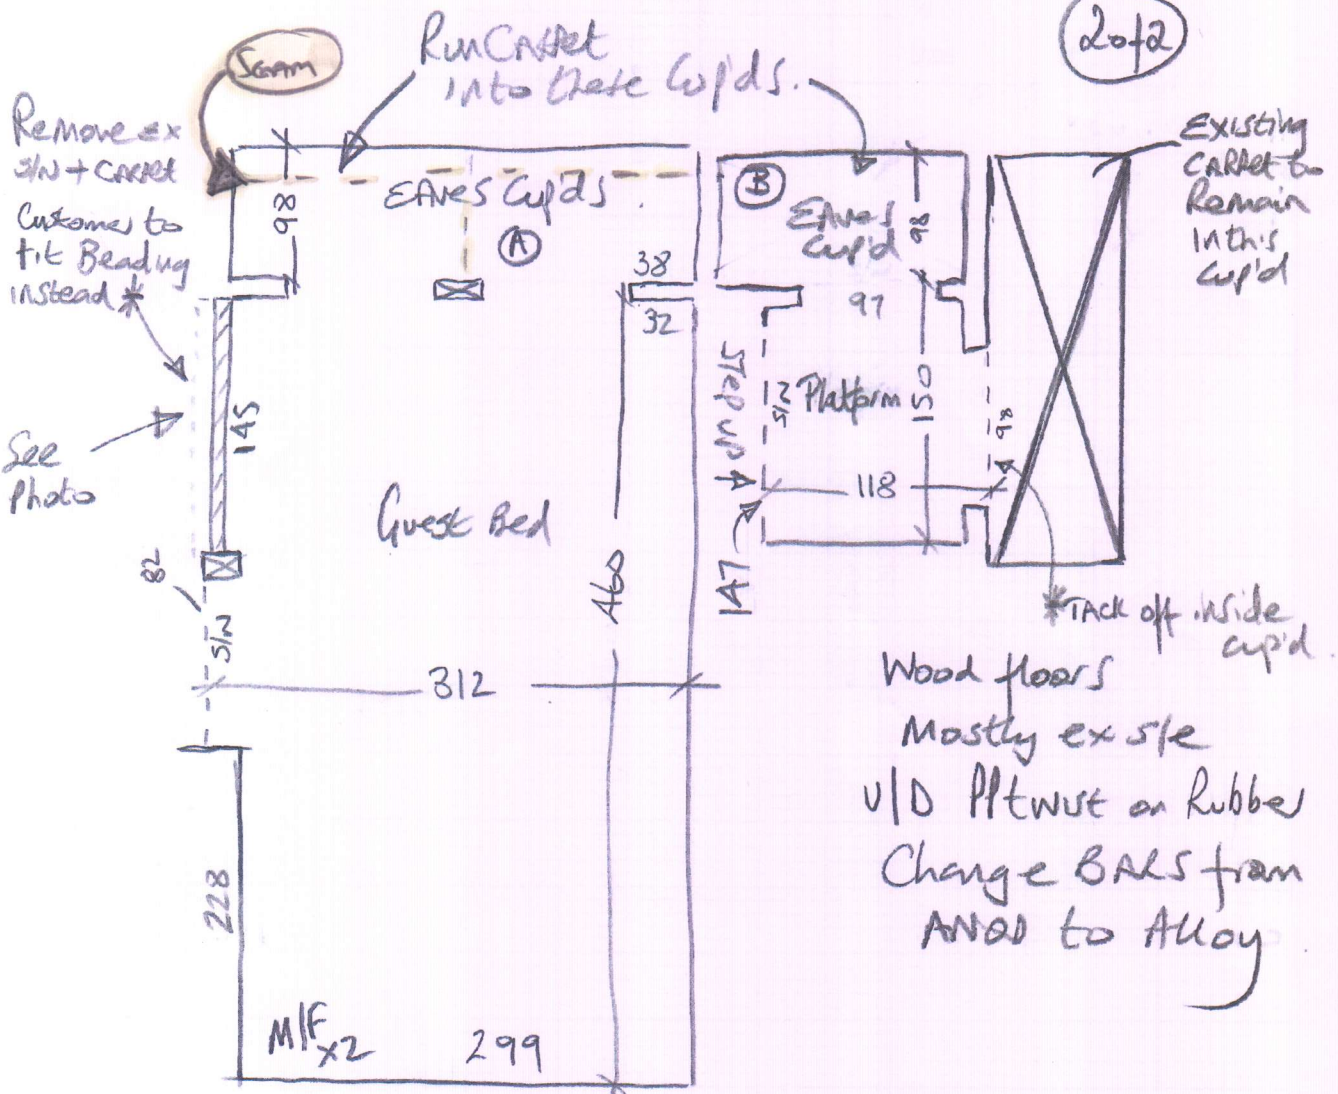 2of2
SEAM
Run Carpet
into these Cup'ds.
Remove ex
S/N + Carpet
Customer to
fit Beading
instead *
See
Photo
98
Eaves Cup'ds.
A
38
32
145
Guest Bed
460
82
S/N
312
228
M/F x2
299
B
Eaves
Cup'd
98
97
Step up
S/N
Platform
150
98
118
147
Existing
Carpet to
Remain
In this
Cup'd
*Tack off inside
cup'd.
Wood floors
Mostly ex s/e
U/D PP twist on Rubber
Change BARS from
ANOD to Alloy